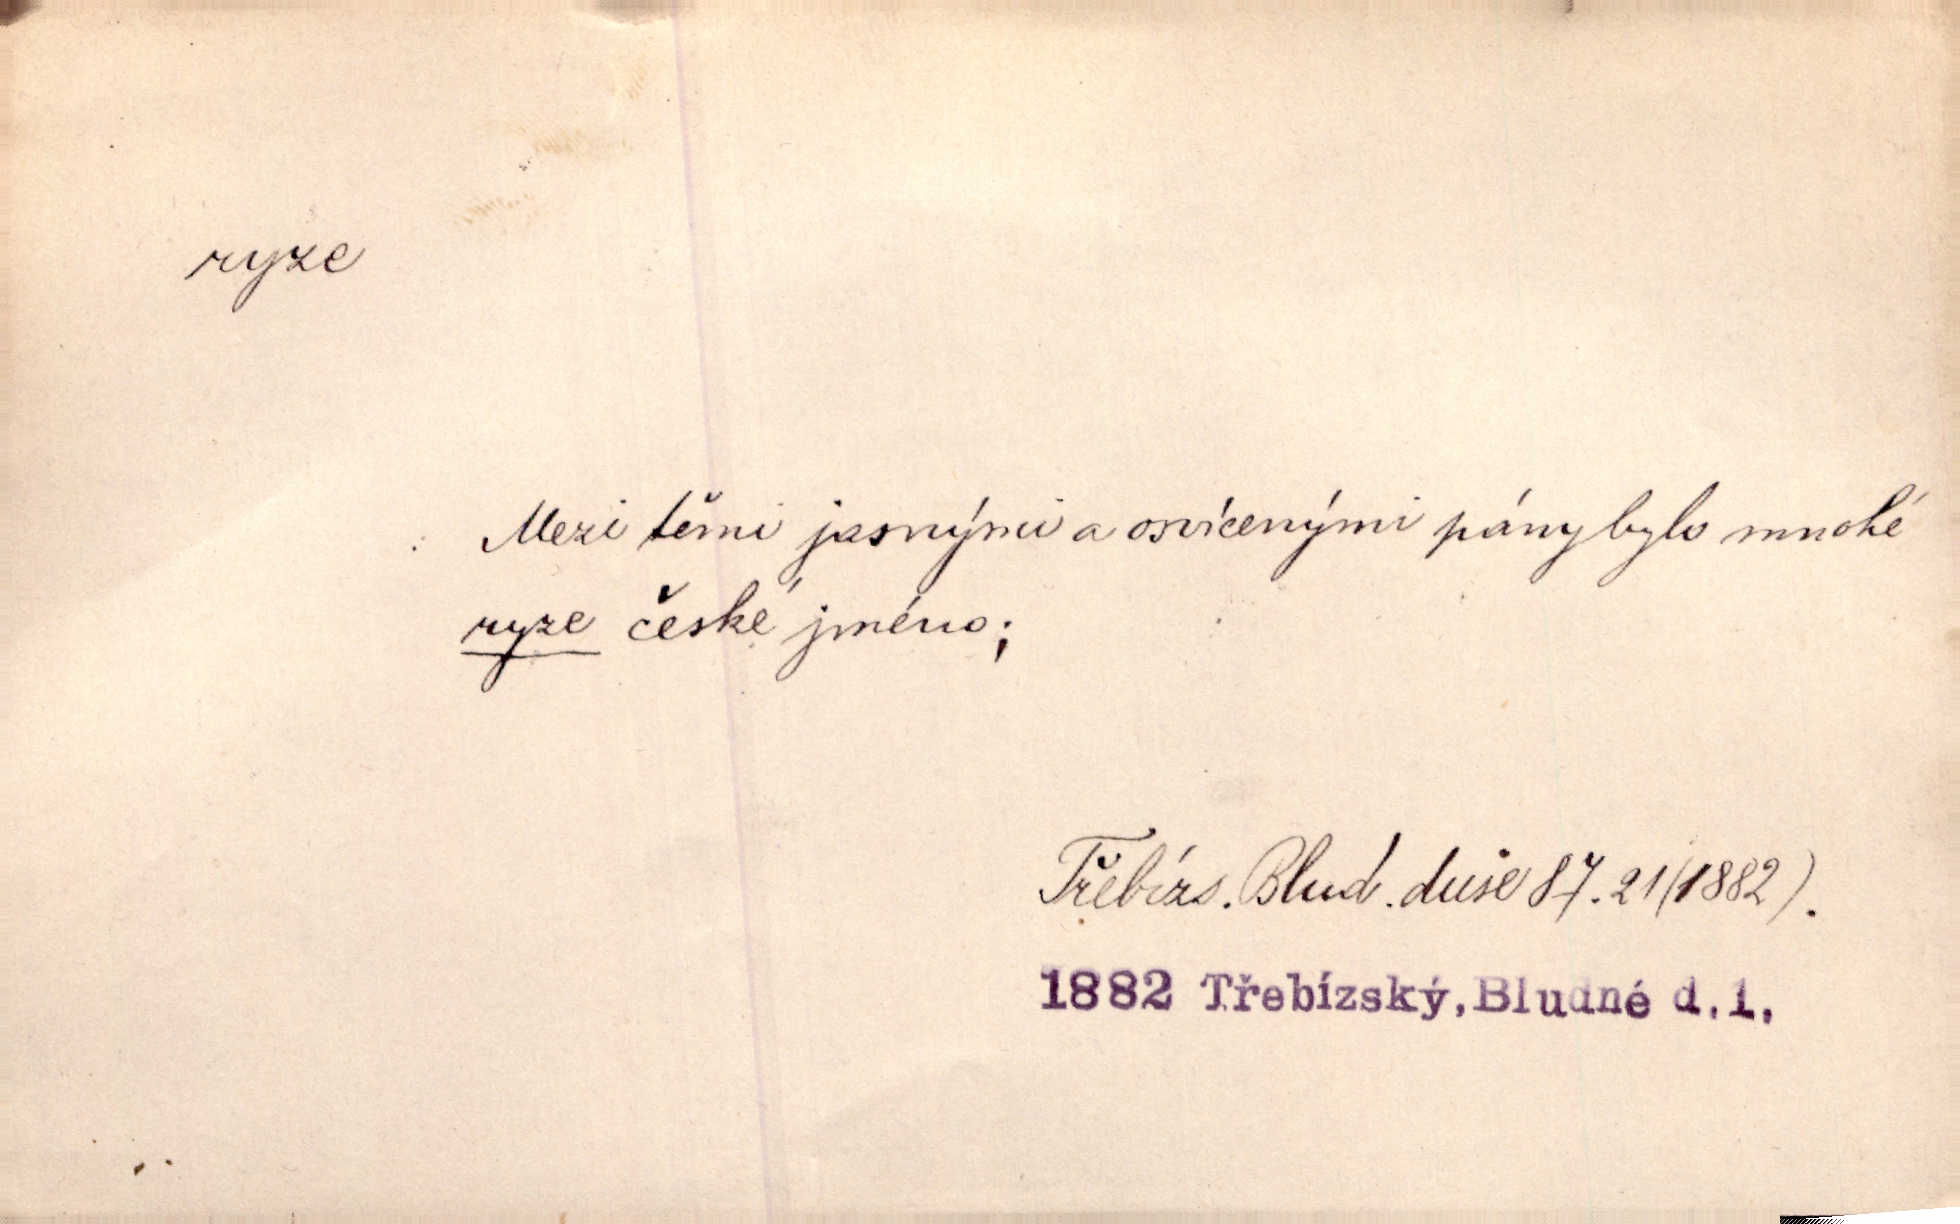 ryze
Mezi těmi jasnými a osvícenými pány bylo mnohé
ryze české jméno;
Třebízs. Blud. duše 87. 21 (1882).
1882 Třebízský, Bludné d. 1.